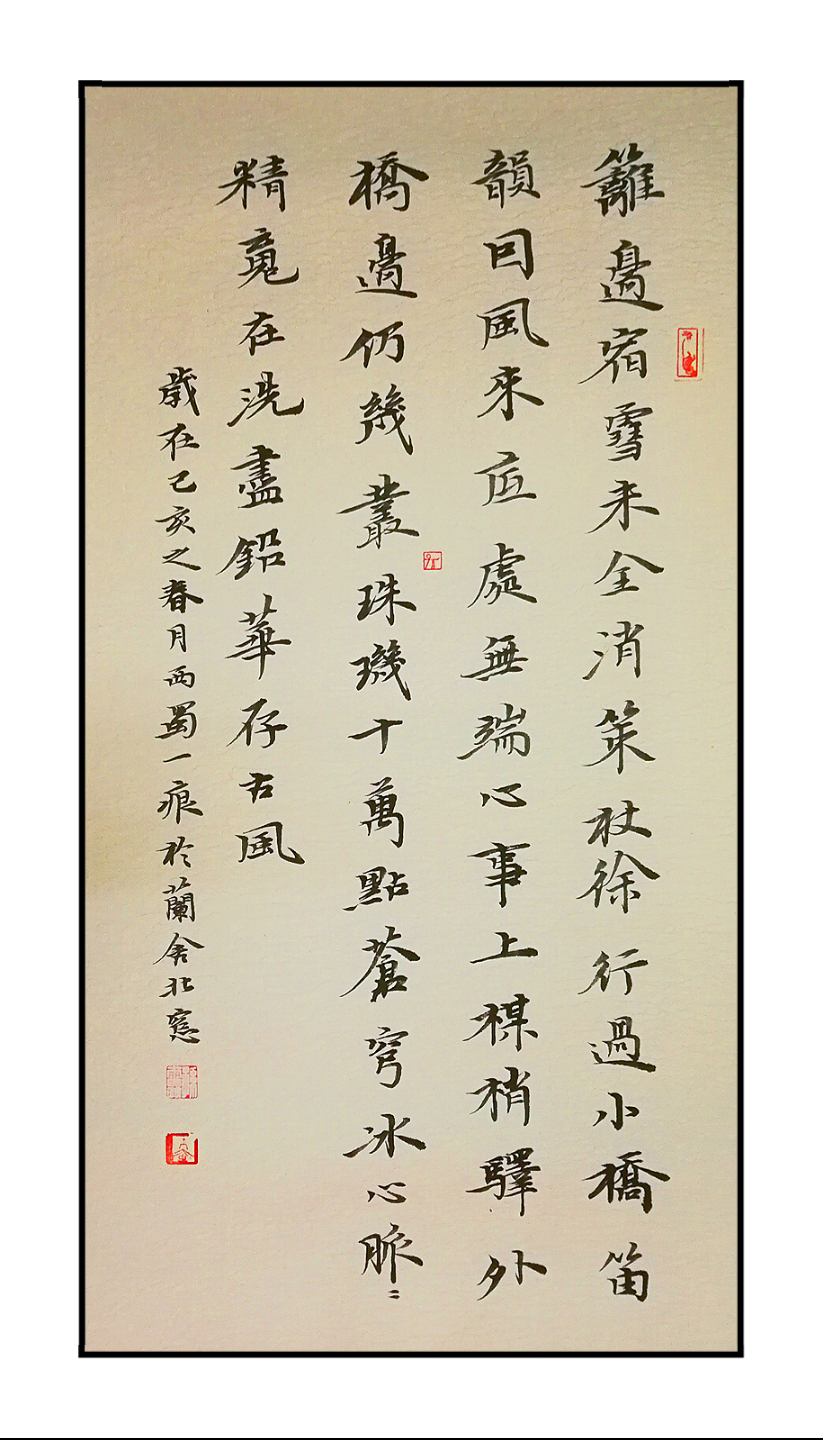 籬邊宿雪未全消策杖徐行過小橋笛
韻回風來底處無端心事上楳梢驛外
橋邊仍幾叢珠璣十萬點蒼穹冰心脈〻
精魂在洗盡鉛華存古風
歲在己亥之春月西蜀一痕於蘭舍北窓